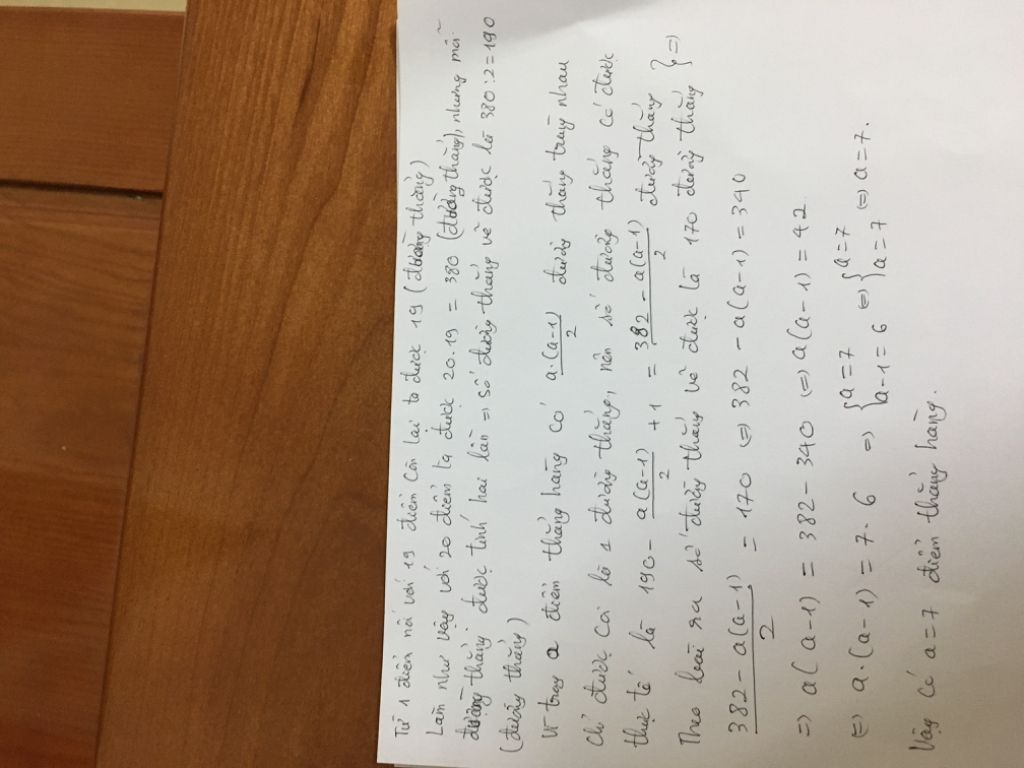 Từ 1 điểm nối với 19 điểm còn lại ta được 19 (đường thẳng)
Làm như vậy với 20 điểm ta được 20.19 = 380 (đường thẳng), nhưng mỗi
đường thẳng được tính hai lần => số đường thẳng vẽ được là 380:2=190
(đường thẳng)
Vì trong a điểm thẳng hàng có a.(a-1)/2 đường thẳng trùng nhau
chỉ được coi là 1 đường thẳng, nên số đường thẳng có được
thực tế là 190 - a(a-1)/2 + 1 = 382 - a(a-1)/2 đường thẳng
Theo bài ra số đường thẳng vẽ được là 170 đường thẳng } =>
382 - a(a-1)/2 = 170 <=> 382 - a(a-1) = 340
=> a(a-1) = 382 - 340 <=> a(a-1) = 42.
<=> a.(a-1) = 7.6 => { a=7 a-1=6 <=> { a=7 a=7 <=> a=7.
Vậy có a=7 điểm thẳng hàng.